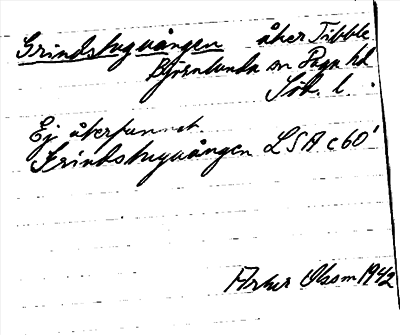 Grindstuguången åker Tibble
Björnlunda sn Daga hd
Söd. l.
Ej återfunnet.
Grindstuguången LSA c60¹
Olsson 1942